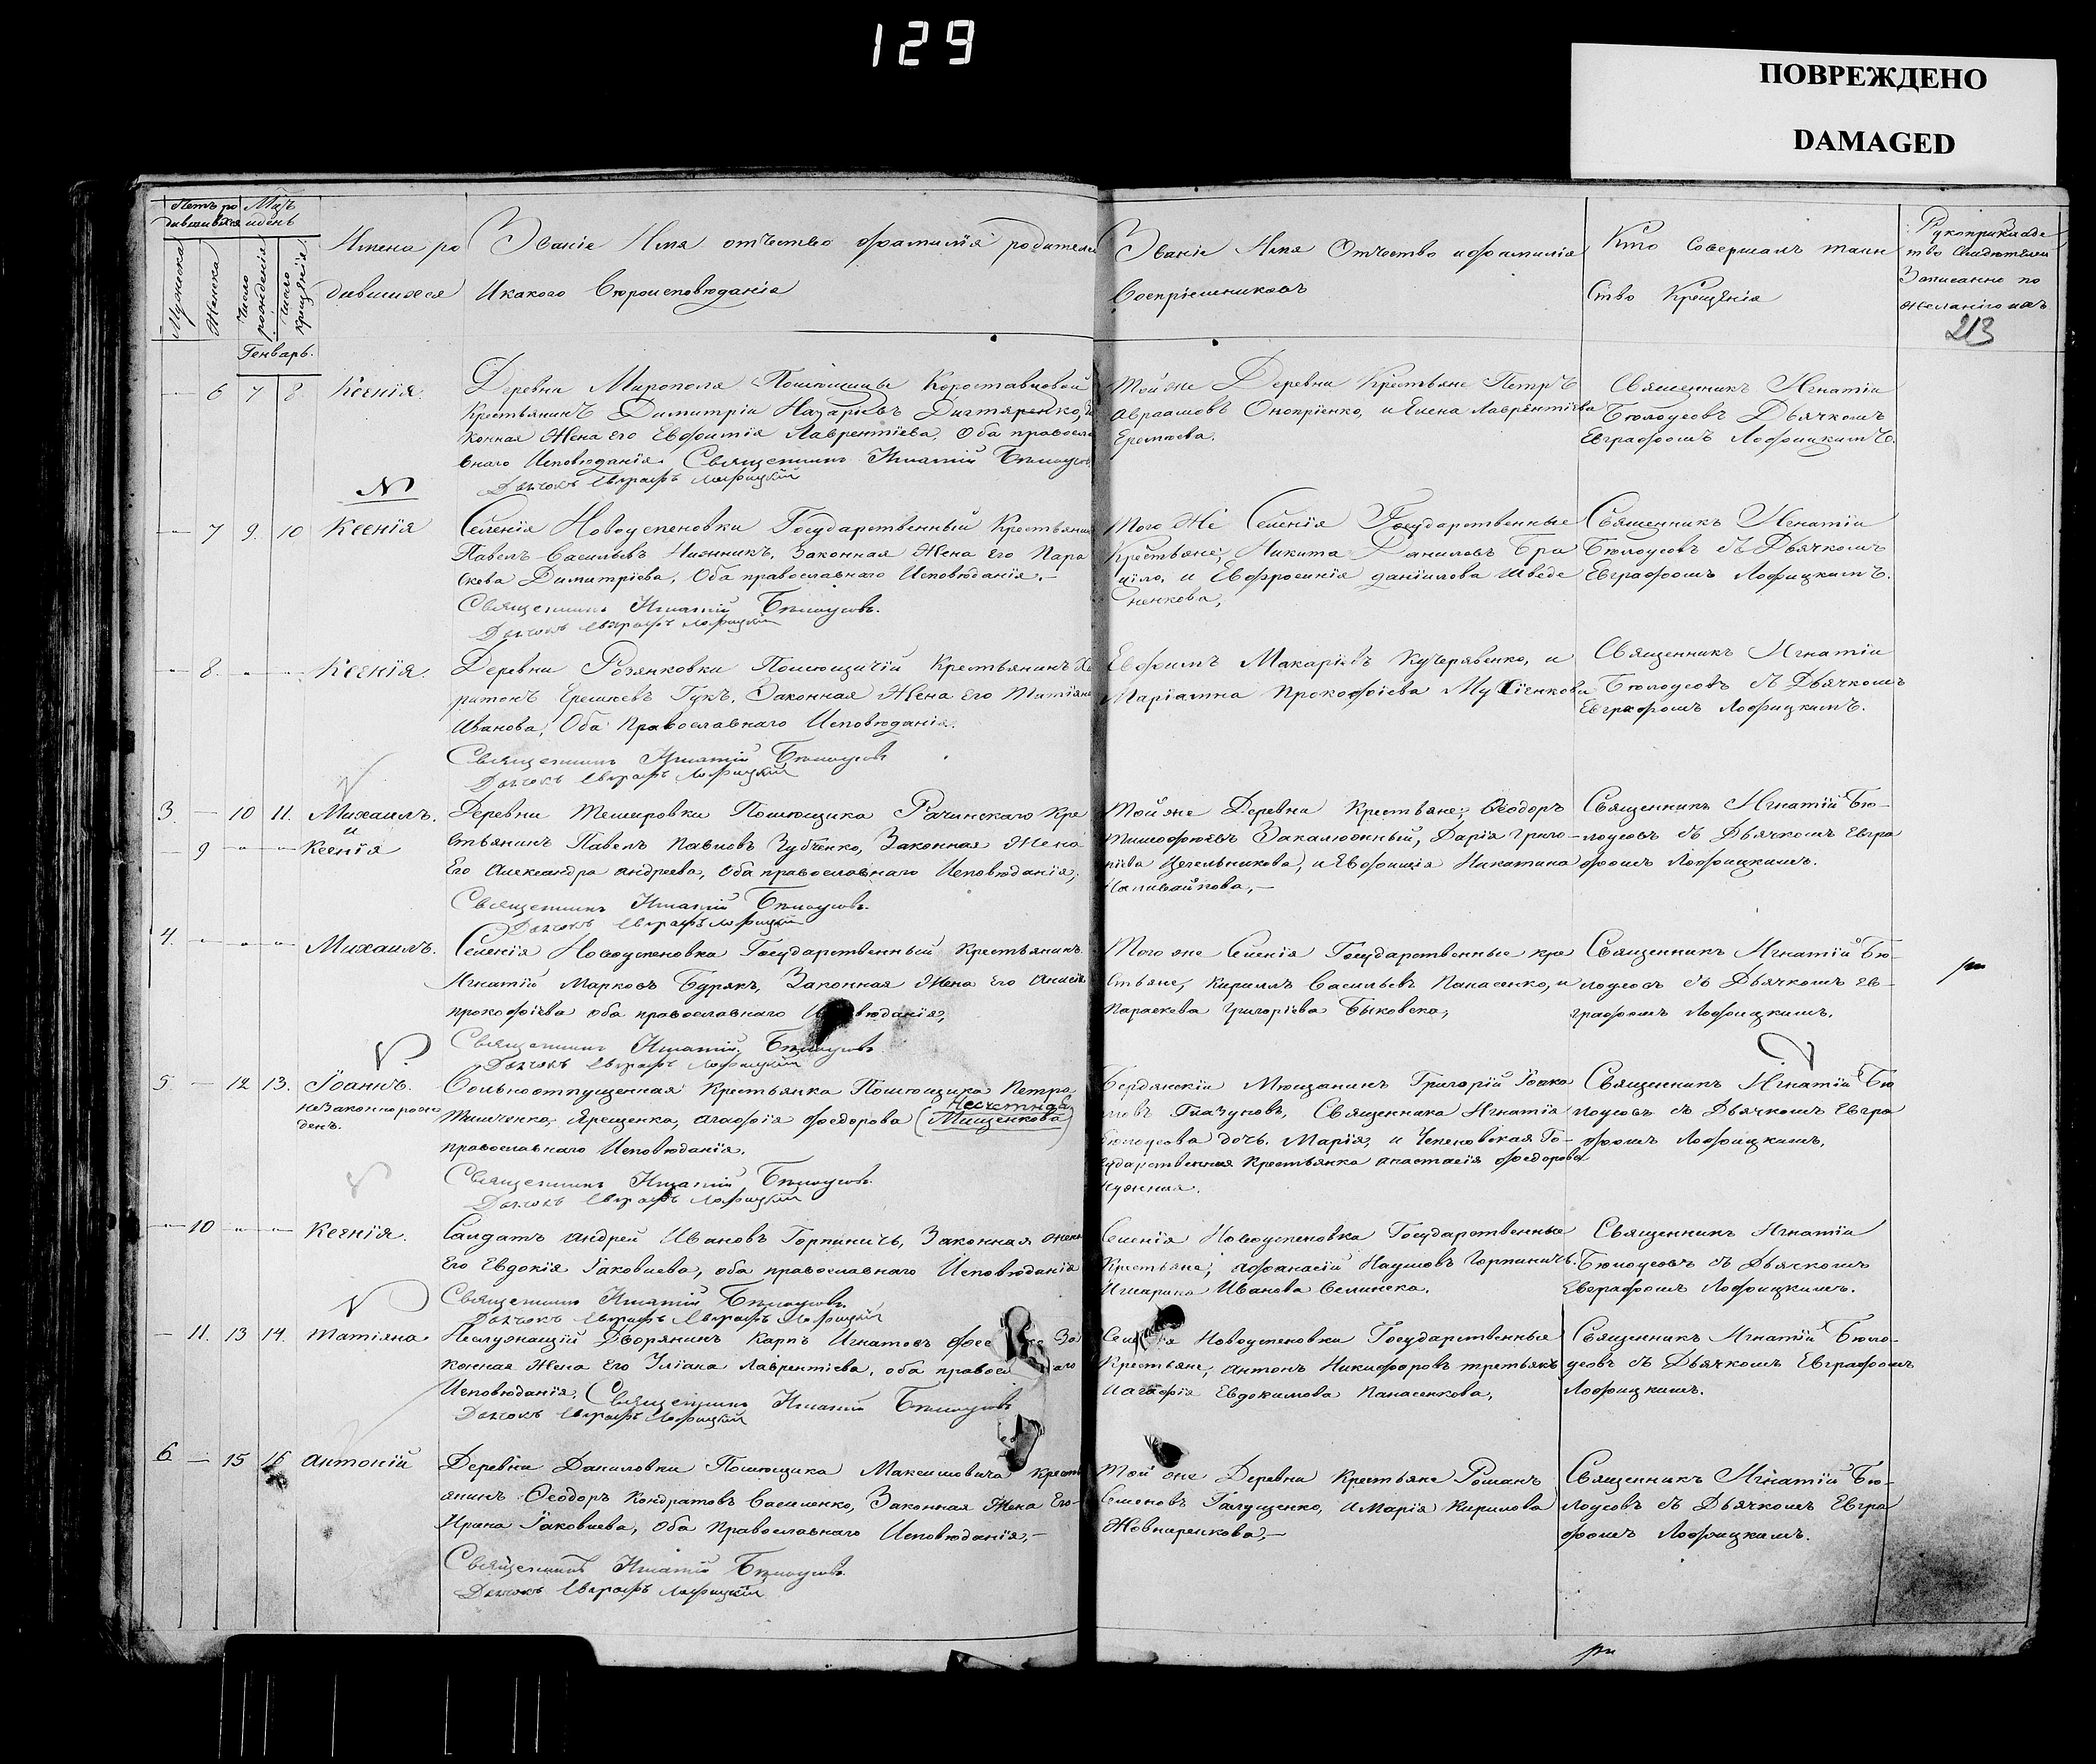 129
ПОВРЕЖДЕНО
DAMAGED
Счетъ ро Мѣц
дившихся и день
Мужеска
Женска
Число рожденія
Число крещенія
Генварь.
Имена ро
дившихся
Званіе Имя отчество фамилія родителей
Икакого Вѣроисповѣданія
Званіе Имя Отчество ифамилія
Воспріемниковъ
Кто совершалъ таин
ство Крещенія
Рукоприкладс
тво Свидѣтелей
Записанно по
желанію ихъ
213
6 7 8. Ксенія.
Деревни Мирополя Помѣщицы Коростовцовой
Крестьянинъ Димитрій Назарієвъ Дигтяренко, За
конная Жена его Евфимія Лаврентіева, Оба правосла
внаго Исповѣданія. Священникъ Игнатій Бѣлоусовъ
Дьячокъ Евграфъ Лофицкій
Той же Деревни Крестьяне Петръ
Авраамовъ Оноприенко, и Елена Лаврентіева
Еремѣева.
Священникъ Игнатій
Бѣлоусовъ Дьячкомъ
Евграфомъ Лофицкимъ.
7 9. 10 Ксенія
Селенія Новоуспеновки Государственный Крестьянинъ
Павелъ Васильевъ Нижникъ, Законная Жена его Пара
скева Димитріева, Оба православнаго Исповѣданія.
Священникъ Игнатій Бѣлоусовъ.
Дьячокъ Евграфъ Лофицкій
Того Же Селенія Государственные
Крестьяне; Никита Даниловъ Бра
ило, и Евфросинія данилова шведе
ненкова,
Священникъ Игнатій
Бѣлоусовъ съ Дьячкомъ
Евграфомъ Лофицкимъ.
8. Ксенія.
Деревни Розянковки Помѣщичій Крестьянинъ Ха
ритонъ Еремѣевъ Гукъ, Законная Жена его Татіяна
Иванова, Оба Православнаго Исповѣданія.
Священникъ Игнатій Бѣлоусовъ
Дьячокъ Евграфъ Лофицкій
Евфимъ Макаріевъ Кучерявенко, и
Маріамна Прокофіева
Священникъ Игнатій
Бѣлоусовъ съ Дьячкомъ
Евграфомъ Лофицкимъ.
3. 10 11. Михаилъ.
и
9 Ксенія
Деревни Темировки Помѣщика Рачинскаго Кре
стьянинъ Павелъ Павловъ Зубченко, Законная Жена
Его Александра андреева, Оба православнаго Исповѣданія,
Священникъ Игнатій Бѣлоусовъ.
Дьячокъ Евграфъ Лофицкій
Той же Деревни Крестьяне; Ѳеодоръ
Тимофѣевъ Закалюжный, Дарія Григо
ріева Цегельникова, и Евфимія Никитина
Наливайкова,
Священникъ Игнатій Бѣ
лоусовъ съ Дьячкомъ Евгра
фомъ Лофицкимъ.
4. Михаилъ.
Селенія Новоуспеновка Государственный Крестьянинъ
Игнатій Марковъ Бурякъ, Законная Жена его
прокофіева оба православнаго Исповѣданія,
Священникъ Игнатій Бѣлоусовъ
Дьячокъ Евграфъ Лофицкій
Того же Селенія Государственные кре
стьяне, Кириллъ Васильевъ Панасенко, и
Параскева Григоріева Быковска,
Священникъ Игнатій Бѣ
лоусовъ съ Дьячкомъ Ев
графомъ Лофицкимъ.
5. 12 13. Іоаннъ.
незаконнорож
денъ.
Вольноотпущенная Крестьянка Помѣщика Петра
Тимченко, Ярещенко, агафія Федорова (Мищенкова)
православнаго Исповѣданія.
Священникъ Игнатій Бѣлоусовъ.
Дьячокъ Евграфъ Лофицкій
Бердянскій Мѣщанинъ Григорій Іоаки
мовъ Глазуновъ, Священника Игнатія
Бѣлоусова дочь. Марія, и Успеновская Го
сударственная Крестьянка анастасія Федорова
Нужная.
Священникъ Игнатій Бѣ
лоусовъ съ Дьячкомъ Евгра
фомъ Лофицкимъ.
10 Ксенія.
Салдатъ андрей Ивановъ Горпиничь, Законная жена
Его Евдокія Іаковлева, оба православнаго Исповѣданія
Священникъ Игнатій Бѣлоусовъ.
Дьячокъ Евграфъ Евграфъ Лофицкій
Селенія Новоуспеновка Государственные
Крестьяне; Афанасій Наумовъ Горпиничъ.
Имарина Иванова
Священникъ Игнатій
Бѣлоусовъ съ Дьячкомъ
Евграфомъ Лофицкимъ.
11. 13 14. Татіяна
Неслужащій Дворянинъ Карпъ Игнатовъ За
конная Жена Его Уліана Лаврентіева, оба правосл аго
Исповѣданія. Священникъ Игнатій Бѣлоусовъ
Дьячокъ Евграфъ Лофицкій
Селенія Новоуспеновки Государственные
Крестьяне, антонъ Никифоровъ третьякъ
иагафія Евдокимова Панасенкова,
Священникъ Игнатій Бѣло
усовъ съ Дьячкомъ Евграфомъ
Лофицкимъ.
6 15 16 Антоній
Деревни Даниловки Помѣщика Максимовича Крест
янинъ Ѳеодоръ Кондратовъ Василенко, Законная Жена Его
Ирина Іаковлева, Оба Православнаго Исповѣданія,
Священникъ Игнатій Бѣлоусовъ.
Дьячокъ Евграфъ Лофицкій
Той же Деревни Крестьяне Романъ
Семеновъ Галущенко, иМарія Кирилова
Жовнаренкова,
Священникъ Игнатій Бѣ
лоусовъ съ Дьячкомъ Евгра
фомъ Лофицкимъ.